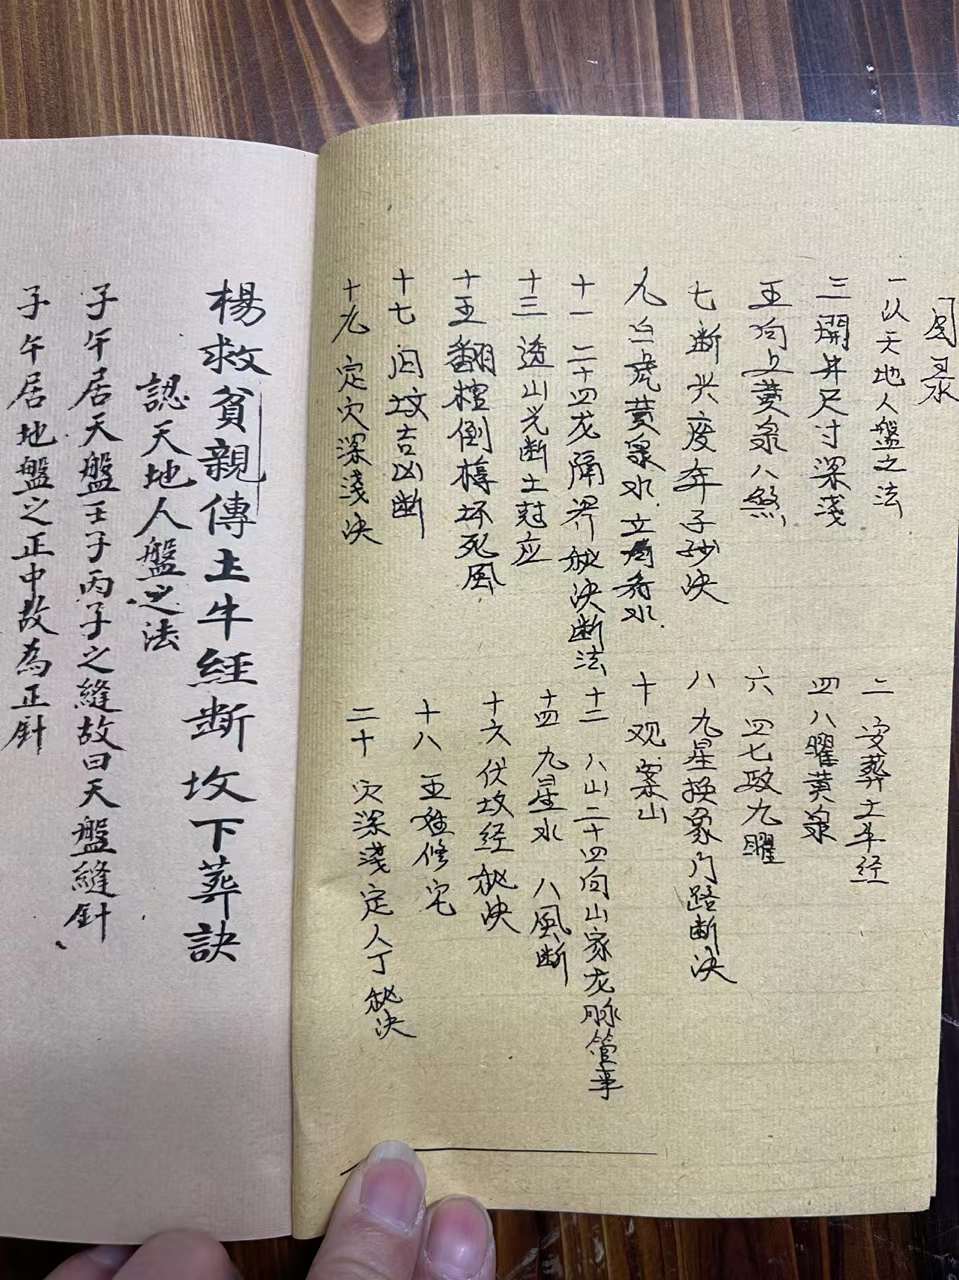 目录
一认天地人盘之法
二 安葬土牛经
三 開井尺寸深淺
四 八曜黄泉
五 向上黄泉八煞
六 四七政九曜
七 断兴废年子妙决
八 九星换象门路断决
九 白虎黄泉水 立向看水
十 观案山
十一 二十四龙隔界秘决断法
十二 八山二十四向山家龙脉管事
十三 透山光断土冠应
十四 九星水 八風断
十五 翻棺倒椁坏死風
十六 伏坟经秘决
十七 旧坟吉凶断
十八 五 修宅
十九 定穴深淺决
二十 穴深淺定人丁秘决
楊救貧親傳土牛經断坟下葬訣
認天地人盤之法
子午居天盤壬子丙子之縫故曰天盤縫針
子午居地盤之正中故為正針